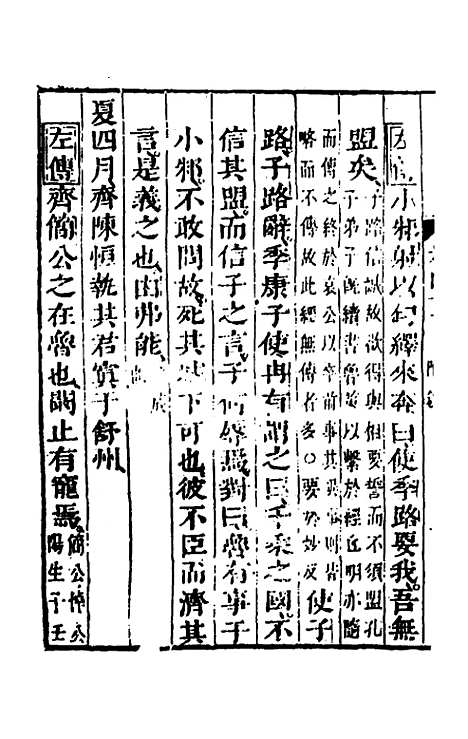 左傳小邾射以句繹來奔曰使季路要我吾無
盟矣子路信誠故欲得與相要誓而不須盟孔
子弟子既續書魯策以繫於經丘明亦隨
而傳之終於哀公以卒前事其異事則皆
略而不傳故此經無傳者多○要於妙反使子
路子路辭季康子使冉有謂之曰千乘之國不
信其盟而信子之言子何辱焉對曰魯有事于
小邾不敢問故死其城下可也彼不臣而濟其
言是義之也由弗能
夏四月齊陳恒執其君寘于舒州
左傳齊簡公之在魯也闞止有寵焉簡公悼公
陽生子壬